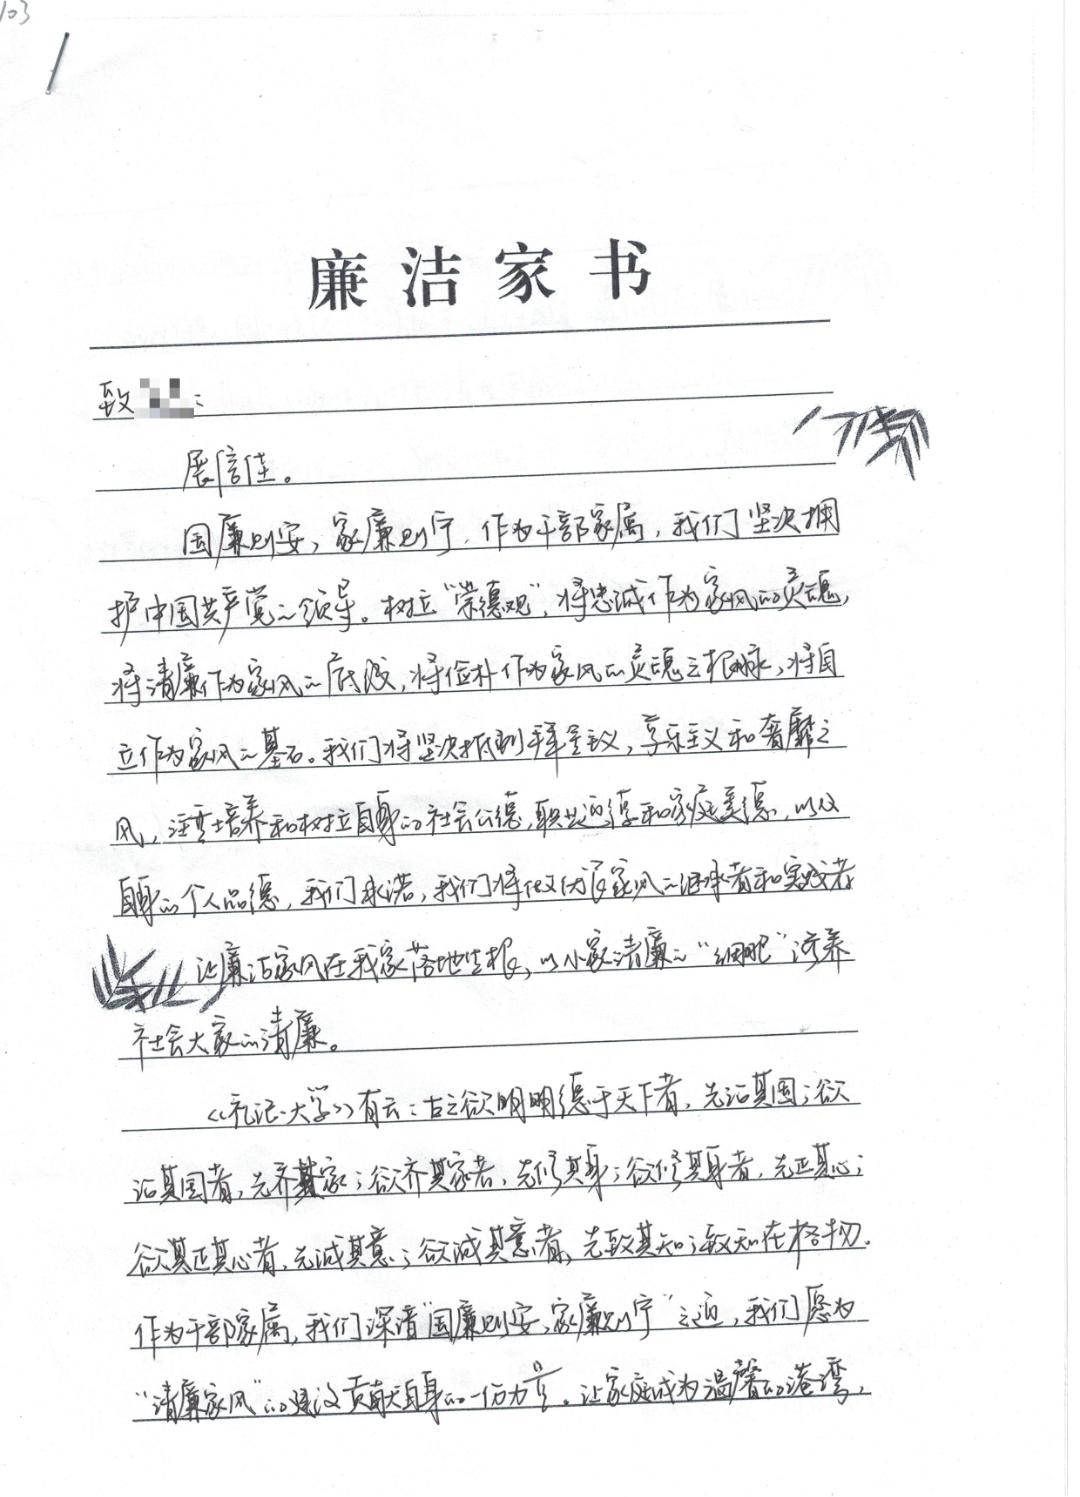 103
廉洁家书
致
展信佳。
国廉则安，家廉则宁，作为干部家属，我们坚决拥
护中国共产党的领导。树立“荣德观”，将忠诚作为家风的灵魂，
将清廉作为家风的底线，将俭朴作为家风的灵魂之根脉，将自
立作为家风的基石。我们将坚决抵制拜金主义，享乐主义和奢靡之
风，注重培养和树立自身的社会公德，职业道德和家庭美德，以及
自身的个人品德，我们承诺，我们将做优良家风的继承者和实践者
让廉洁家风在我家落地生根，以小家清廉的“细胞”滋养
社会大家的清廉。
《礼记·大学》有云：古之欲明明德于天下者，先治其国；欲
治其国者，先齐其家；欲齐其家者，先修其身；欲修其身者，先正其心；
欲其正其心者，先诚其意；欲诚其意者，先致其知；致知在格物.
作为干部家属，我们深清“国廉则安，家廉则宁”之道，我们愿为
“清廉家风”的建设贡献自身的一份力量。让家庭成为温馨的港湾，